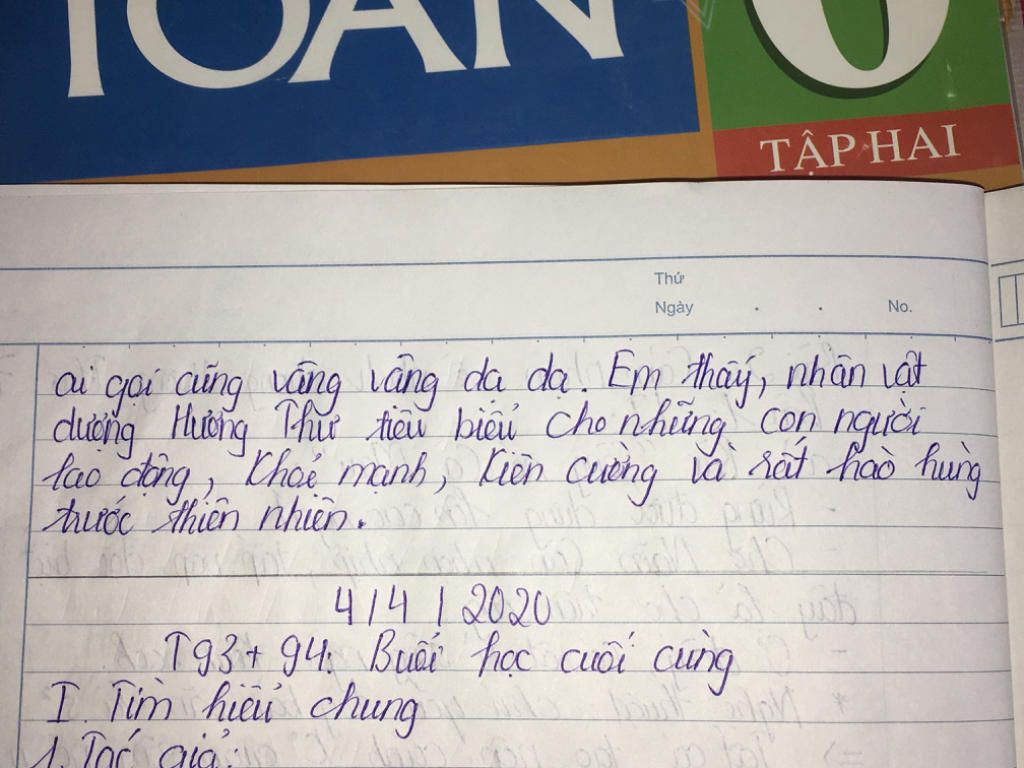 TOÁN 6
TẬP HAI
Thứ
Ngày . . No.
ai gọi cũng vâng vâng dạ dạ. Em thấy, nhân vật
dượng Hương Thư tiêu biểu cho những con người
lao động, khoẻ mạnh, kiên cường và rất hào hùng
trước thiên nhiên.
4/4/2020
T93+94: Buổi học cuối cùng
I. Tìm hiểu chung
1. Tác giả: